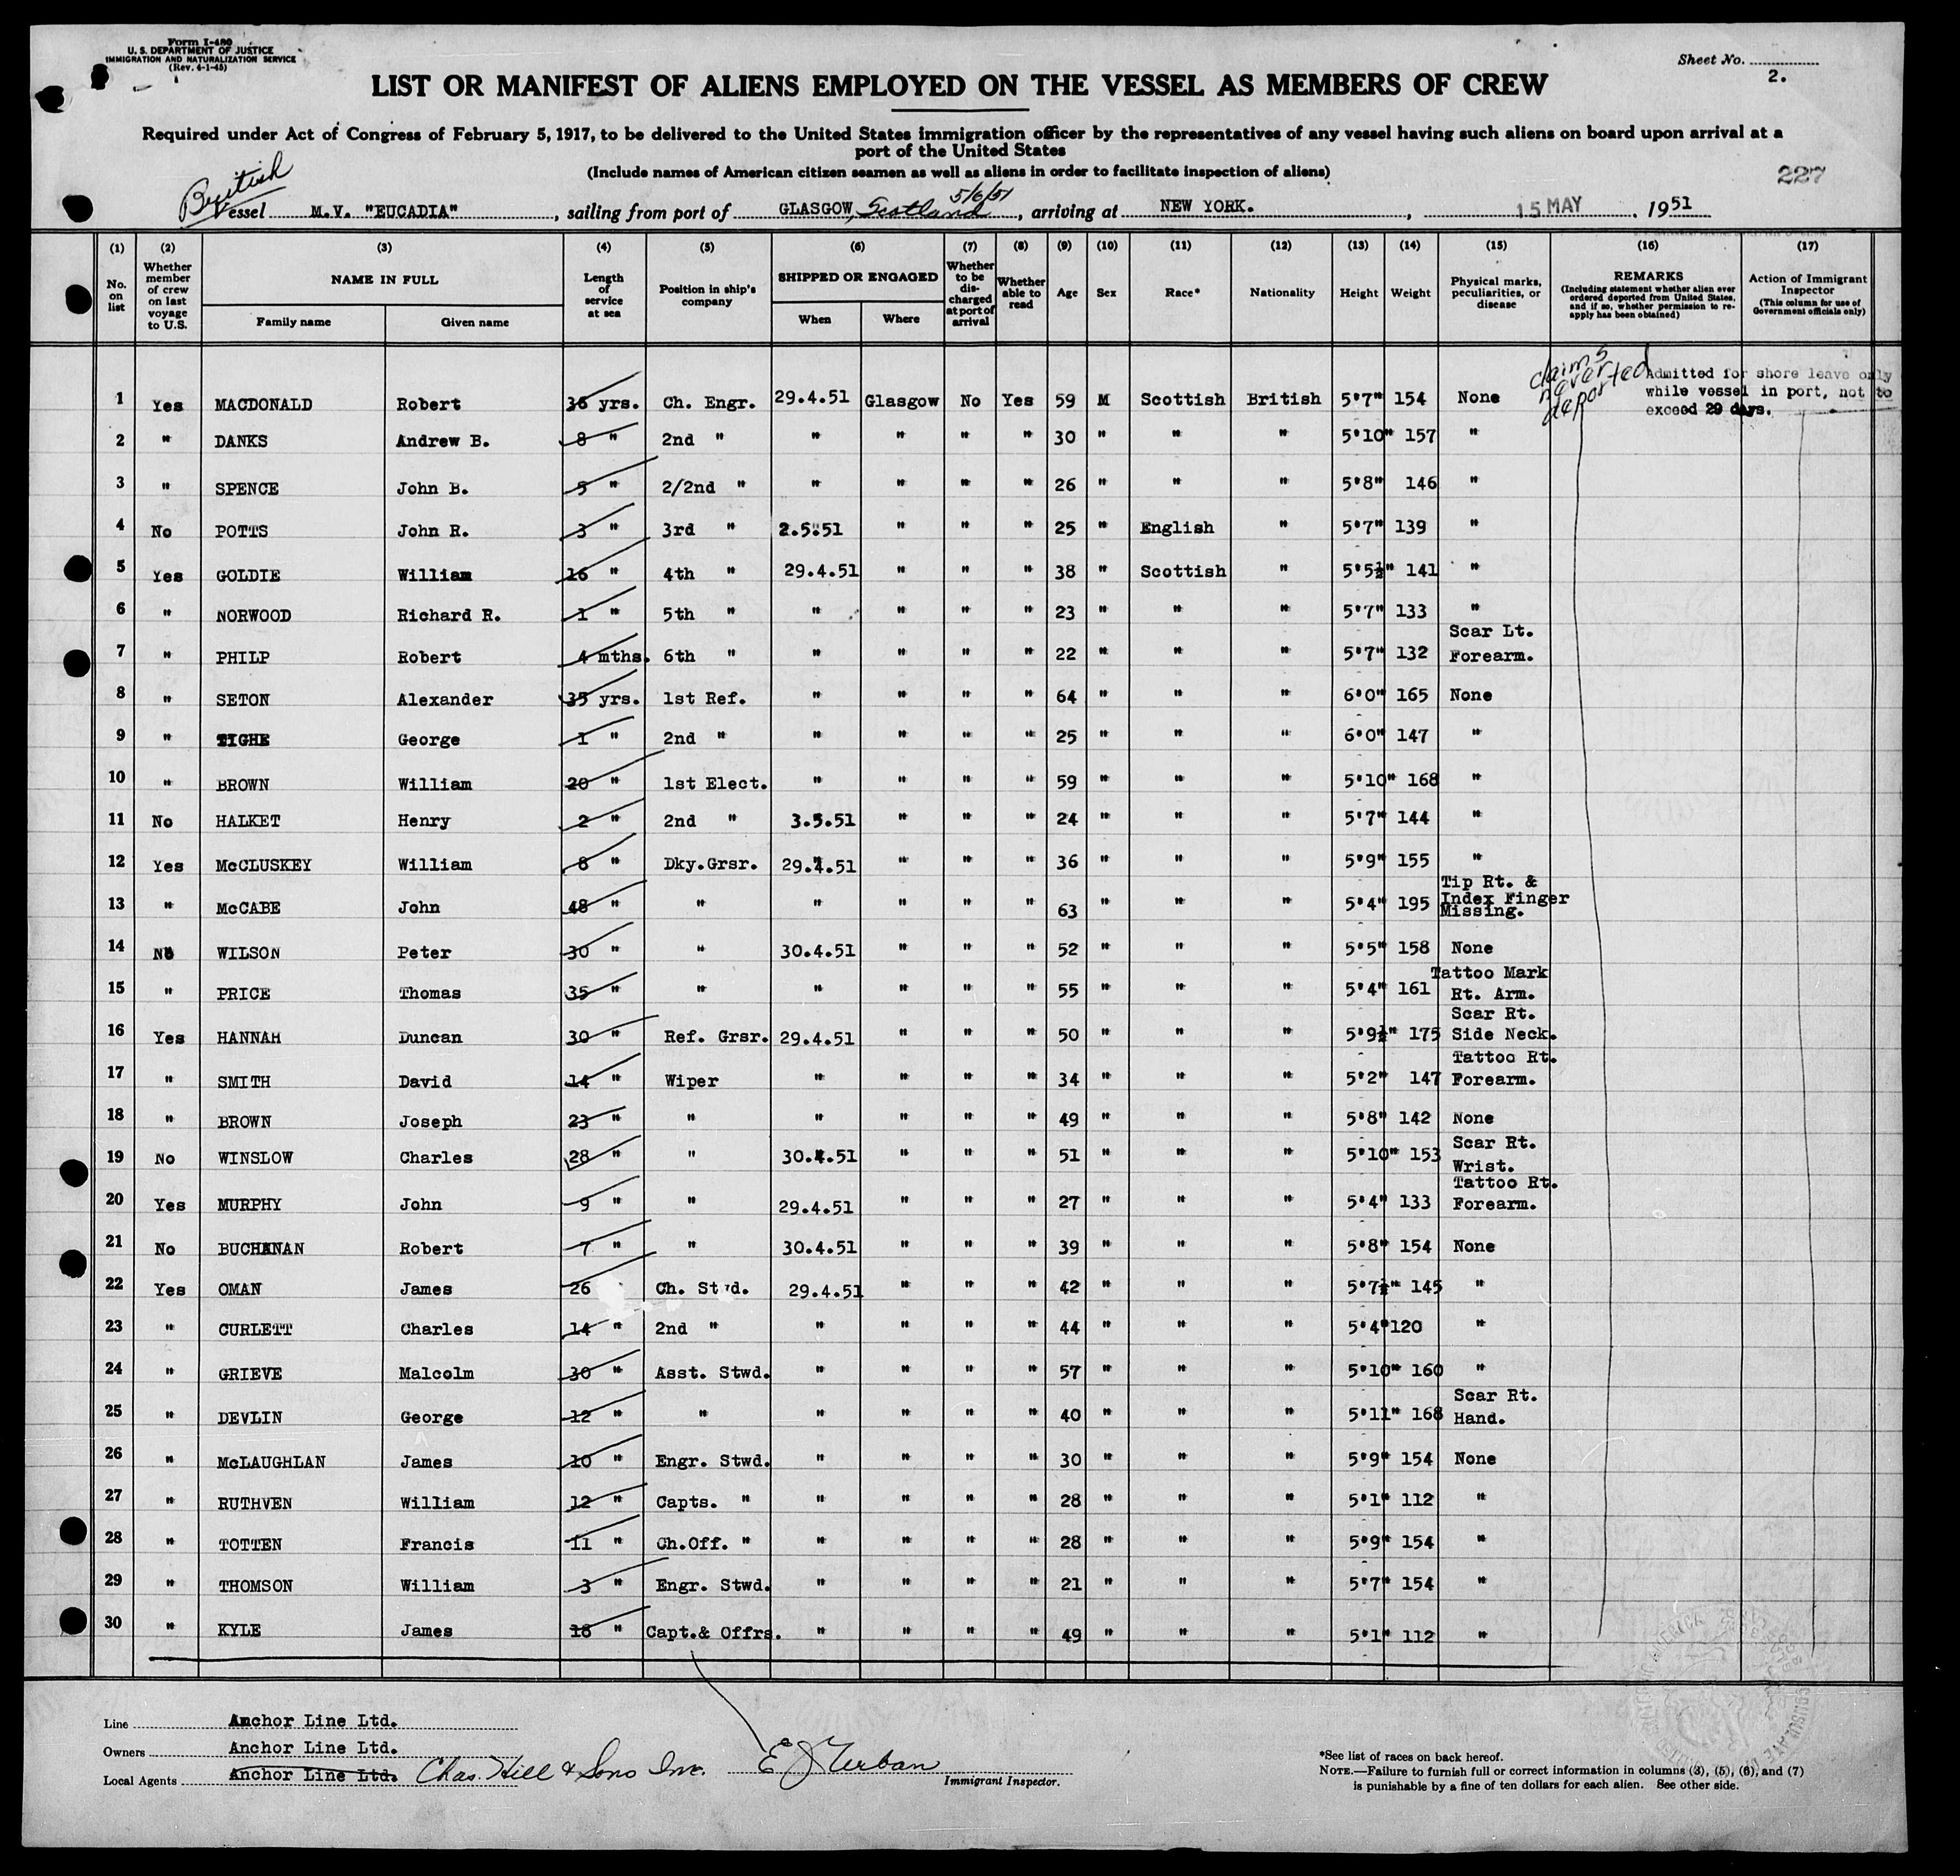 Form I-480
U. S. DEPARTMENT OF JUSTICE
IMMIGRATION AND NATURALIZATION SERVICE
(Rev. 4-1-45)
Sheet No.
2.
LIST OR MANIFEST OF ALIENS EMPLOYED ON THE VESSEL AS MEMBERS OF CREW
Required under Act of Congress of February 5, 1917, to be delivered to the United States immigration officer by the representatives of any vessel having such aliens on board upon arrival at a
port of the United States
(Include names of American citizen seamen as well as aliens in order to facilitate inspection of aliens)
227
British
Vessel M.V. "EUCADIA", sailing from port of GLASGOW, Scotland 5/6/51, arriving at NEW YORK., 15 MAY, 1951
(1) (2) (3) (4) (5) (6) (7) (8) (9) (10) (11) (12) (13) (14) (15) (16) (17)
No. on list
Whether member of crew on last voyage to U.S.
NAME IN FULL
Family name
Given name
Length of service at sea
Position in ship's company
SHIPPED OR ENGAGED
When
Where
Whether to be discharged at port of arrival
Whether able to read
Age
Sex
Race*
Nationality
Height
Weight
Physical marks, peculiarities, or disease
REMARKS
(Including statement whether alien ever ordered deported from United States, and if so, whether permission to re-apply has been obtained)
Action of Immigrant Inspector
(This column for use of Government officials only)
claims never deported
Admitted for shore leave only
while vessel in port, not to
exceed 29 days.
1 Yes MACDONALD Robert 36 yrs. Ch. Engr. 29.4.51 Glasgow No Yes 59 M Scottish British 5'7" 154 None
2 " DANKS Andrew B. 8 " 2nd " " " " " 30 " " " 5'10" 157 "
3 " SPENCE John B. 5 " 2/2nd " " " " " 26 " " " 5'8" 146 "
4 No POTTS John R. 3 " 3rd " 2.5.51 " " " 25 " English " 5'7" 139 "
5 Yes GOLDIE William 16 " 4th " 29.4.51 " " " 38 " Scottish " 5'5½" 141 "
6 " NORWOOD Richard R. 1 " 5th " " " " " 23 " " " 5'7" 133 "
7 " PHILP Robert 4 mths. 6th " " " " " 22 " " " 5'7" 132 Scar Lt. Forearm.
8 " SETON Alexander 35 yrs. 1st Ref. " " " " 64 " " " 6'0" 165 None
9 " TIGHE George 1 " 2nd " " " " " 25 " " " 6'0" 147 "
10 " BROWN William 20 " 1st Elect. " " " " 59 " " " 5'10" 168 "
11 No HALKET Henry 2 " 2nd " 3.5.51 " " " 24 " " " 5'7" 144 "
12 Yes McCLUSKEY William 8 " Dky.Grsr. 29.4.51 " " " 36 " " " 5'9" 155 "
13 " McCABE John 48 " " " " " " 63 " " " 5'4" 195 Tip Rt. & Index Finger Missing.
14 No WILSON Peter 30 " " 30.4.51 " " " 52 " " " 5'5" 158 None
15 " PRICE Thomas 35 " " " " " " 55 " " " 5'4" 161 Tattoo Mark Rt. Arm.
16 Yes HANNAH Duncan 30 " Ref. Grsr. 29.4.51 " " " 50 " " " 5'9½" 175 Scar Rt. Side Neck.
17 " SMITH David 14 " Wiper " " " " 34 " " " 5'2" 147 Tattoo Rt. Forearm.
18 " BROWN Joseph 23 " " " " " " 49 " " " 5'8" 142 None
19 No WINSLOW Charles 28 " " 30.4.51 " " " 51 " " " 5'10" 153 Scar Rt. Wrist.
20 Yes MURPHY John 9 " " 29.4.51 " " " 27 " " " 5'4" 133 Tattoo Rt. Forearm.
21 No BUCHANAN Robert 7 " " 30.4.51 " " " 39 " " " 5'8" 154 None
22 Yes OMAN James 26 Ch. Stwd. 29.4.51 " " " 42 " " " 5'7½" 145 "
23 " CURLETT Charles 14 " 2nd " " " " " 44 " " " 5'4" 120 "
24 " GRIEVE Malcolm 30 " Asst. Stwd. " " " " 57 " " " 5'10" 160 "
25 " DEVLIN George 12 " " " " " " 40 " " " 5'11" 168 Scar Rt. Hand.
26 " McLAUGHLAN James 10 " Engr. Stwd. " " " " 30 " " " 5'9" 154 None
27 " RUTHVEN William 12 " Capts. " " " " " 28 " " " 5'1" 112 "
28 " TOTTEN Francis 11 " Ch.Off. " " " " " 28 " " " 5'9" 154 "
29 " THOMSON William 3 " Engr. Stwd. " " " " 21 " " " 5'7" 154 "
30 " KYLE James 18 " Capt.& Offrs. " " " " 49 " " " 5'1" 112 "
Line Anchor Line Ltd.
Owners Anchor Line Ltd.
Local Agents Anchor Line Ltd. Chas. Hill & Sons Inc.
Immigrant Inspector.
*See list of races on back hereof.
NOTE.—Failure to furnish full or correct information in columns (3), (5), (6), and (7)
is punishable by a fine of ten dollars for each alien. See other side.